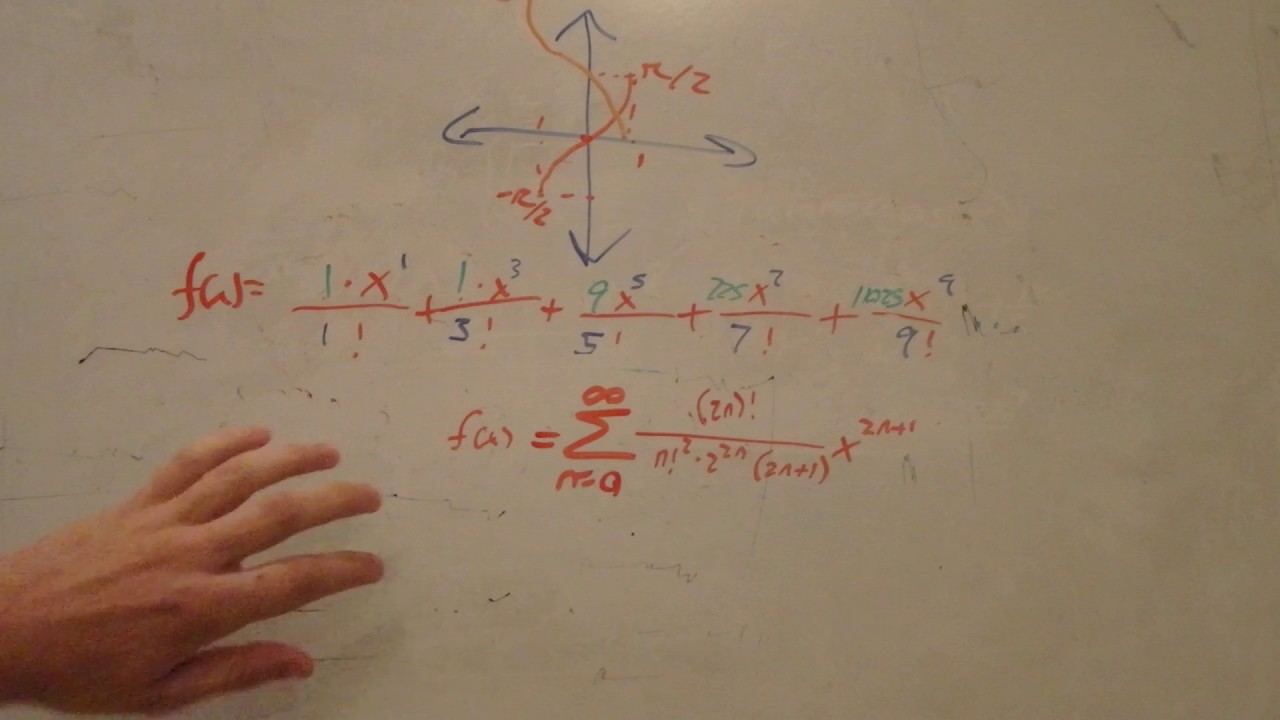 π/2
1
-π/2
f(x) = 1·x^1/1! + 1·x^3/3! + 9x^5/5! + 225x^7/7! + 11025x^9/9!
f(x) = ∞∑n=0 (2n)!/n!^2·2^2n(2n+1) x^2n+1